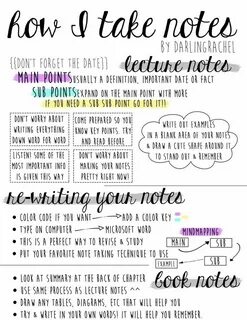 how I take notes
BY DARLINGRACHEL
{{DON'T FORGET THE DATE}} lecture notes
MAIN POINTS USUALLY A DEFINITION, IMPORTANT DATE OR FACT
SUB POINTS EXPAND ON THE MAIN POINT WITH MORE
IF YOU NEED A SUB SUB POINT GO FOR IT!!
DON'T WORRY ABOUT
WRITING EVERYTHING
DOWN WORD FOR WORD
COME PREPARED SO YOU
KNOW KEY POINTS. TRY
AND READ BEFORE
LISTEN! SOME OF THE
MOST IMPORTANT INFO
IS GIVEN THIS WAY
DON'T WORRY ABOUT
MAKING YOUR NOTES
PRETTY RIGHT NOW!
WRITE OUT EXAMPLES
IN A BLANK AREA OF YOUR NOTES
& DRAW A CUTE SHAPE AROUND IT
TO STAND OUT & REMEMBER
re-writing your notes
• COLOR CODE IF YOU WANT → ADD A COLOR KEY
• TYPE ON COMPUTER → MICROSOFT WORD
• THIS IS A PERFECT WAY TO REVISE & STUDY
• PUT YOUR FAVORITE NOTE TAKING TECHNIQUE TO USE
MINDMAPPING
MAIN
SUB
EXAMPLE
SUB
book notes
• LOOK AT SUMMARY AT THE BACK OF CHAPTER
• USE SAME PROCESS AS LECTURE NOTES ^^
• DRAW ANY TABLES, DIAGRAMS, ETC THAT WILL HELP YOU
• TRY & WRITE IN YOUR OWN WORDS! IT WILL HELP YOU REMEMBER.